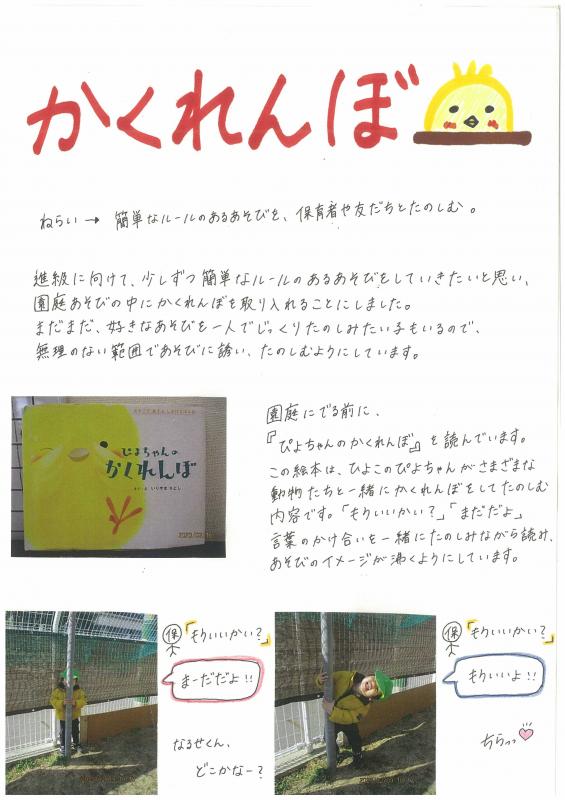 かくれんぼ
ねらい → 簡単なルールのあるあそびを、保育者や友だちとたのしむ。
進級に向けて、少しずつ簡単なルールのあるあそびをしていきたいと思い、
園庭あそびの中にかくれんぼを取り入れることにしました。
まだまだ、好きなあそびを一人でじっくりたのしみたい子もいるので、
無理のない範囲であそびに誘い、たのしむようにしています。
ぴよちゃんの
かくれんぼ
いりやまさとし
園庭にでる前に、
『ぴよちゃんのかくれんぼ』を読んでいます。
この絵本は、ひよこのぴよちゃんがさまざまな
動物たちと一緒にかくれんぼをしてたのしむ
内容です。「もういいかい?」「まだだよ」
言葉のかけ合いを一緒にたのしみながら読み、
あそびのイメージが沸くようにしています。
保「もういいかい?」
まーだだよ!!
なるせくん、
どこかなー?
保「もういいかい?」
もういいよ!!
ちらっっ